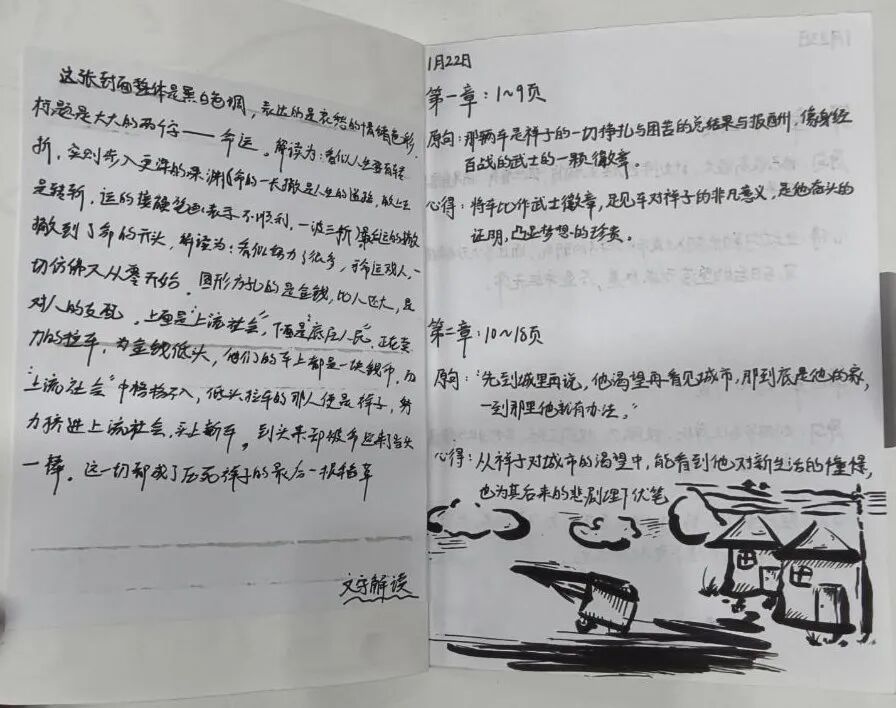 这张封面整体是黑白色调，表达的是哀愁的情绪色彩，
标题是大大的两个字——命运。解读为：看似人生要有转
折，实则步入更深的深渊(命的一长撇是人生的道路，
是转折，运的 表示不顺利，一波三折)最后运的撇
撇到了命的开头，解读为：看似努力了很多，命运戏人，一
切仿佛又从零开始。圆形方孔的是金钱，比人还大，是
对人的支配。上面是“上流社会”，下面是“底层人民”，正在卖
力的拉车，为金钱低头，他们的车上都是一块钱币，与
“上流社会”中格格不入，低头拉车的那人便是祥子，努
力挤进上流社会，买上新车，到头来却被命运来了当头
一棒。这一切都成了压死祥子的最后一根稻草
文字解读
1月22日
第一章：1~9页
原句：那辆车是祥子的一切挣扎与困苦的总结果与报酬，像身经
百战的武士的一颗徽章。
心得：将车比作武士徽章，足见车对祥子的非凡意义，是他奋斗的
证明，凸显梦想的珍贵。
第二章：10~18页
原句：“先到城里再说，他渴望再看见城市，那到底是他的家，
一到那里他就有办法。”
心得：从祥子对城市的渴望中，能看到他对新生活的憧憬，
也为其后来的悲剧埋下伏笔